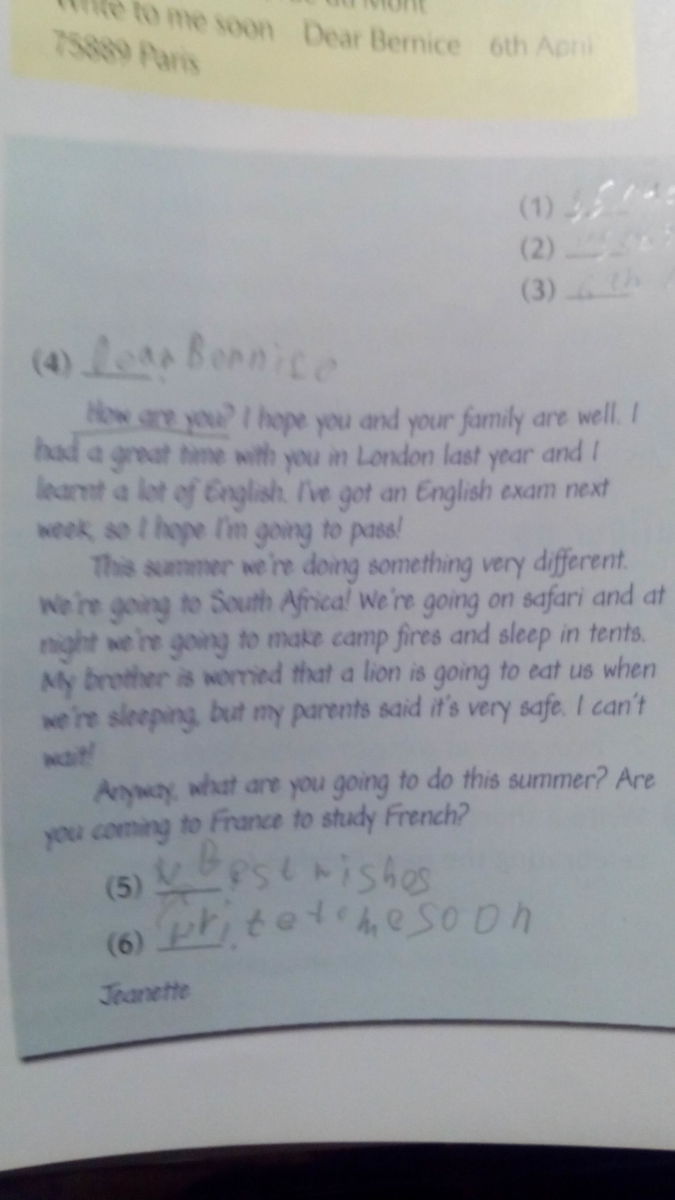 Write to me soon Dear Bernice 6th April
75889 Paris
(1)
(2)
(3) 6th
(4) Dear Bernice
How are you? I hope you and your family are well. I
had a great time with you in London last year and I
learnt a lot of English. I've got an English exam next
week, so I hope I'm going to pass!
This summer we're doing something very different.
We're going to South Africa! We're going on safari and at
night we're going to make camp fires and sleep in tents.
My brother is worried that a lion is going to eat us when
we're sleeping, but my parents said it's very safe. I can't
wait!
Anyway, what are you going to do this summer? Are
you coming to France to study French?
(5) Best wishes
(6) write to me soon
Jeanette